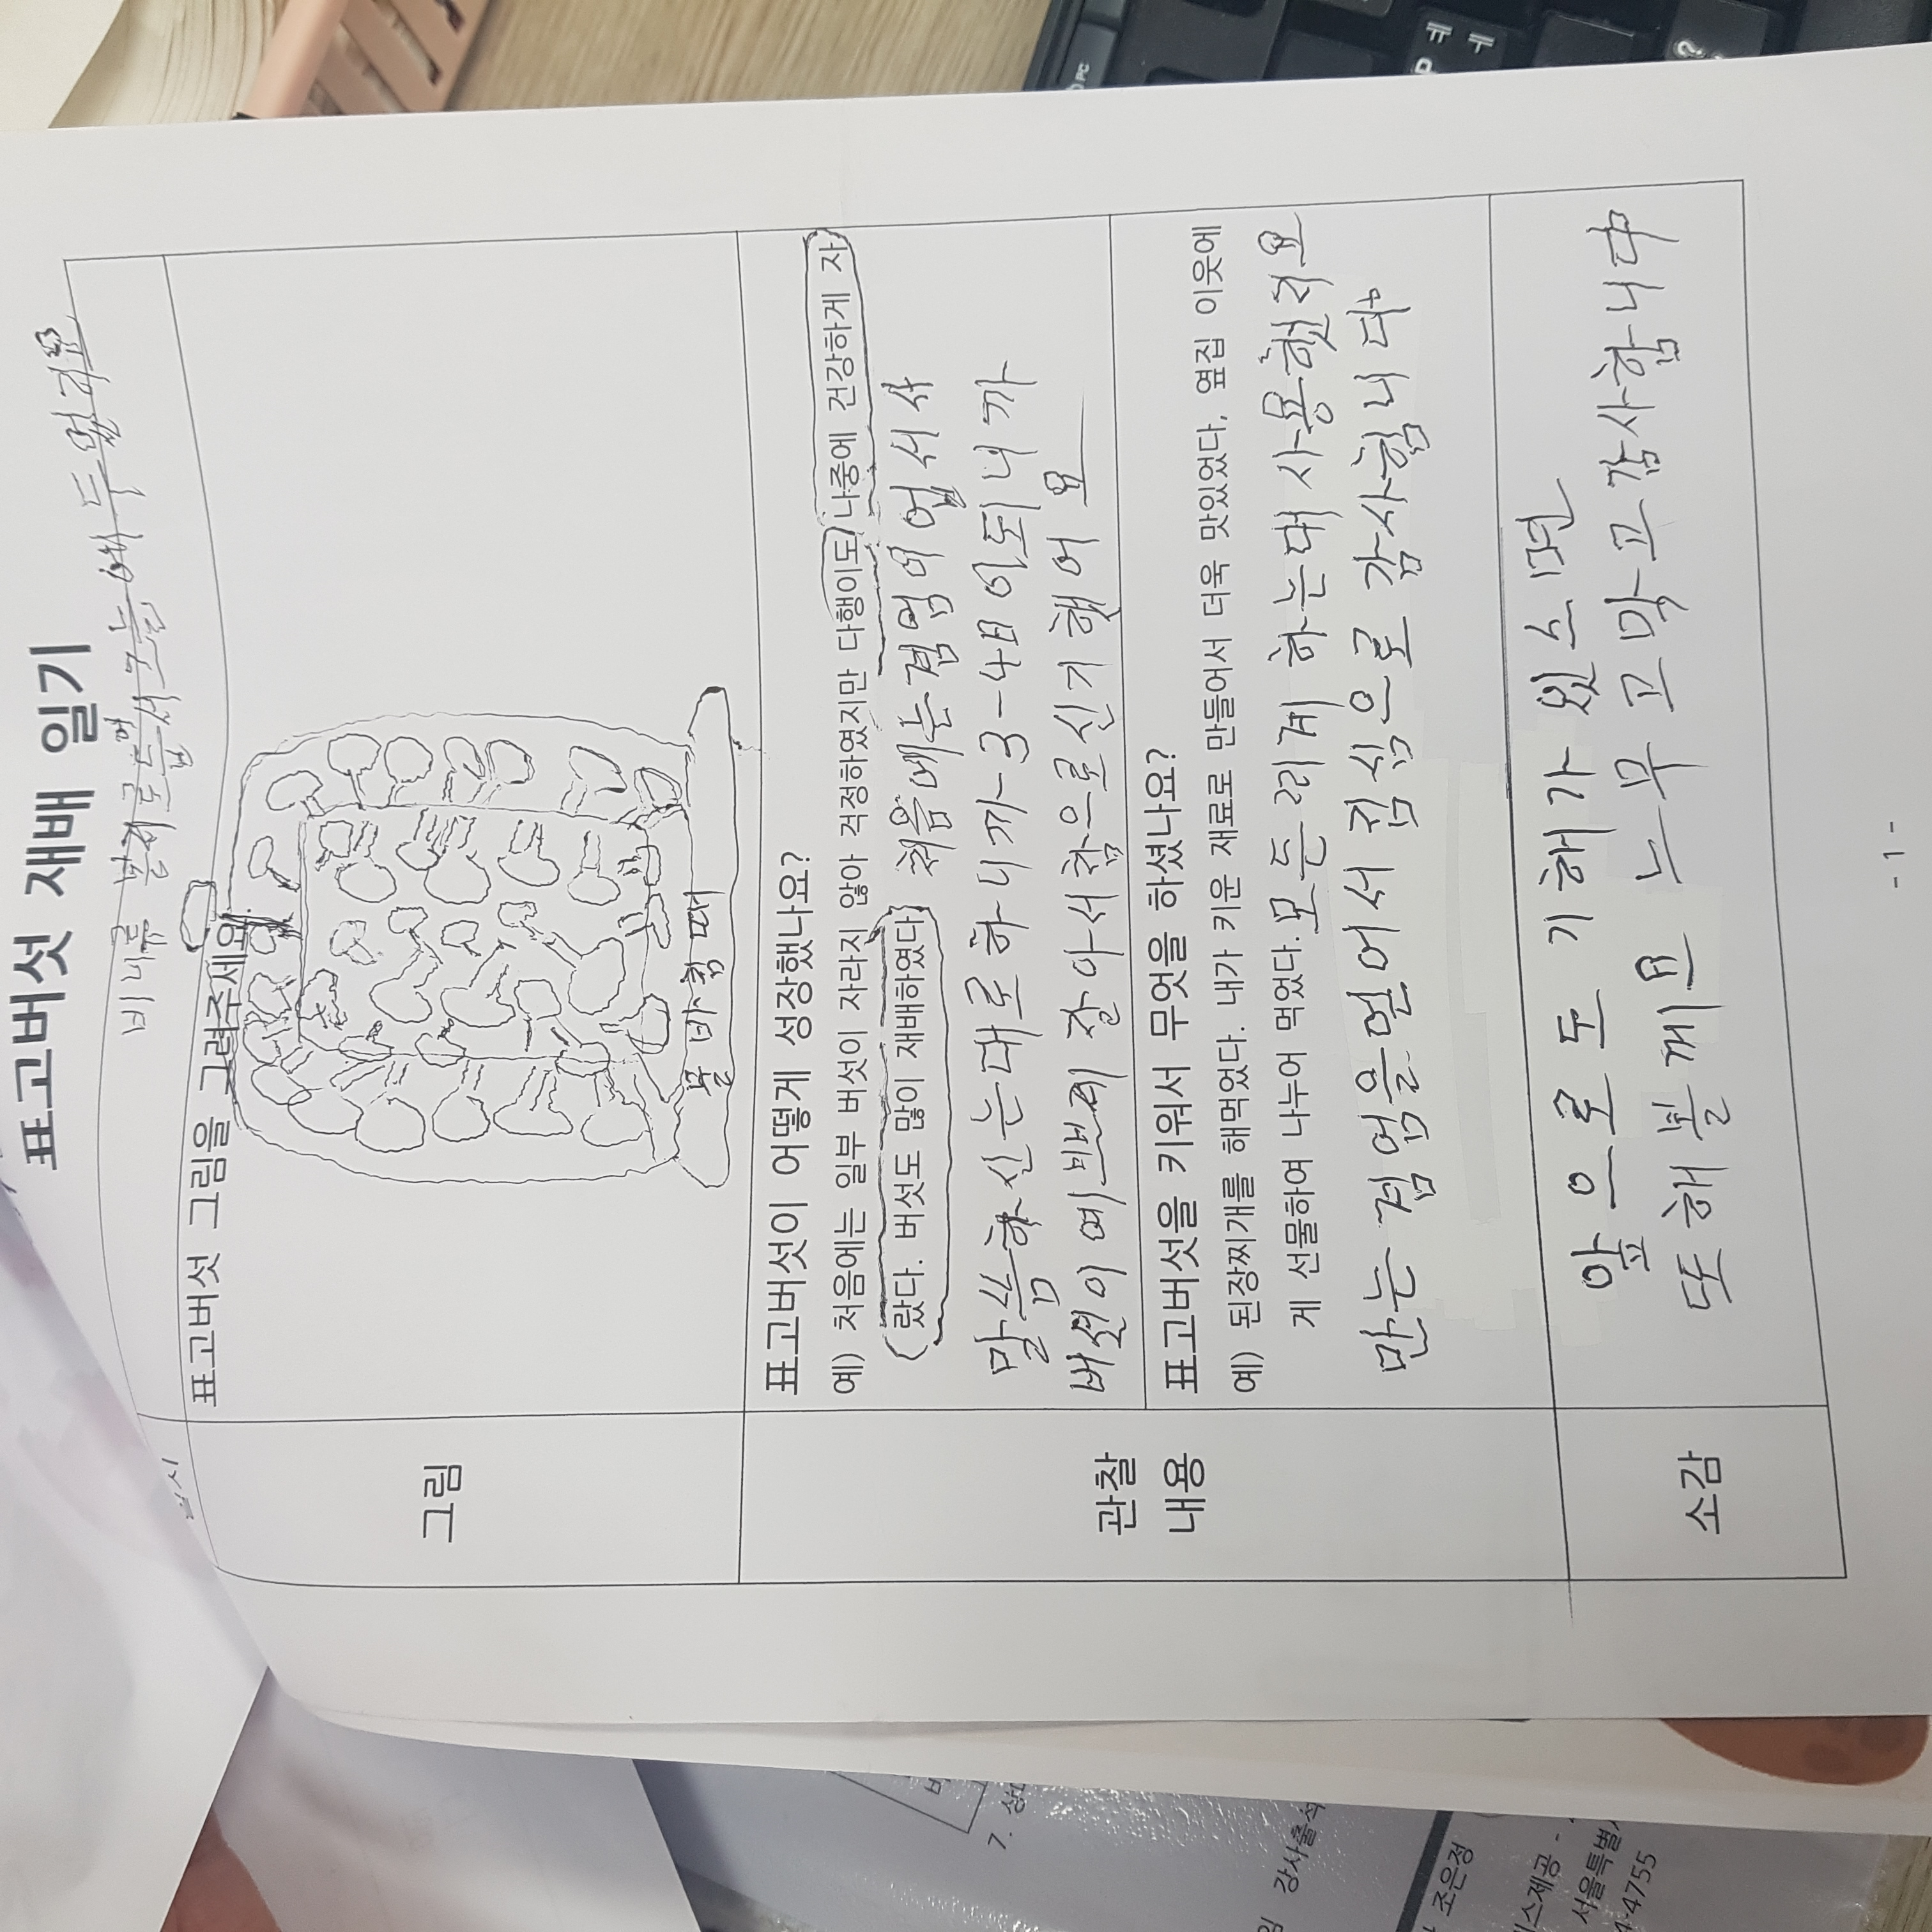 표고버섯 재배 일기
표고버섯 그림을 그려주세요.
그림
물 바침때
표고버섯이 어떻게 성장했나요?
예) 처음에는 일부 버섯이 자라지 않아 걱정하였지만 다행이도 나중에 건강하게 자
랐다. 버섯도 많이 재배하였다. 처음에는 겸엄이 업서서
말씀하신는대로 하니까 3-4일이되니까
버섯이 에쁘게 잘아서 참으로 신기했어요
관찰
내용
표고버섯을 키워서 무엇을 하셨나요?
예) 된장찌개를 해먹었다. 내가 키운 재료로 만들어서 더욱 맛있었다, 옆집 이웃에
게 선물하여 나누어 먹었다. 모든 리게 하는대 사용했러요
만는 겸엄을 먼어서 김심으로 감사힙니다
소감
앞으로도 기해가 있스면
또 해볼께요 느무 고맣고 감사함니다
- 1 -
7.
조은정
스제공 -
서울특별
4-4755